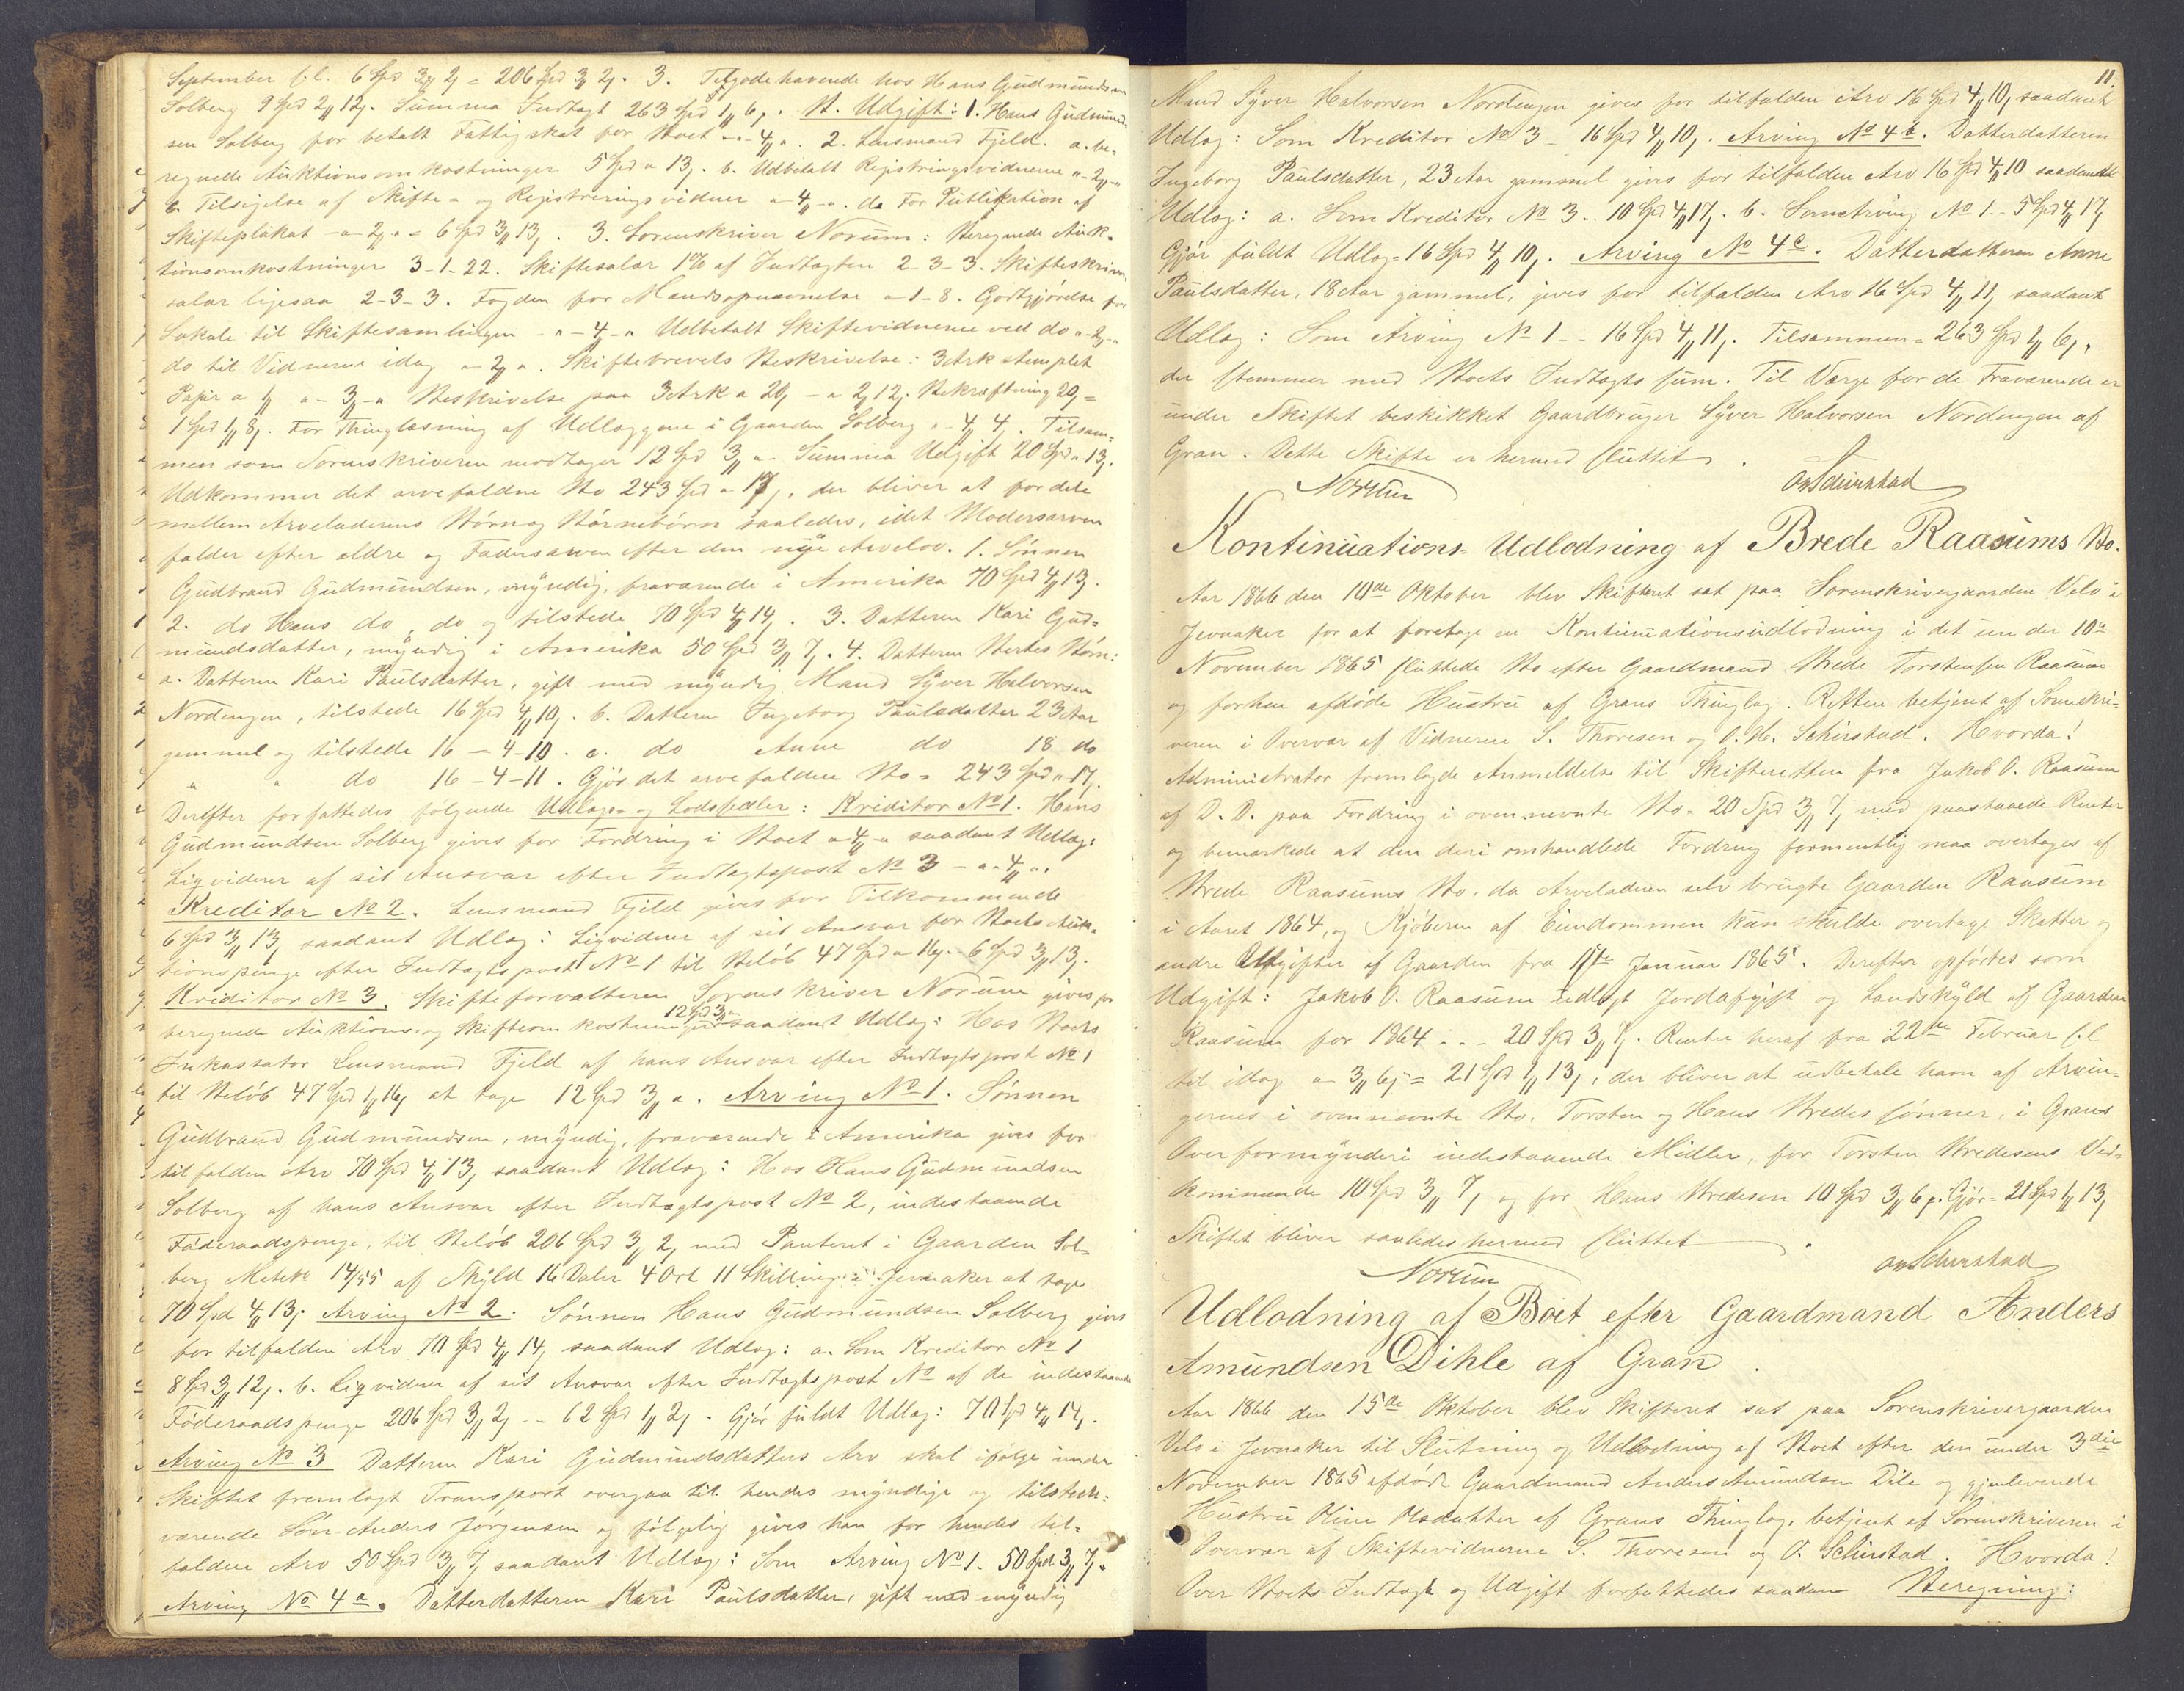 September f.l. 6 Spd 3 2 = 206 Spd 3 2. 3. Tilgodehavende hos Hans Gudmundsen
Solberg 9 Spd 2 12. Summa Indtægt 263 Spd 1 6. Udgift: 1. Hans Gudmund-
sen Solberg for betalt Fattigskat for Boet - 4 -. 2. Lensmand Fjeld. a. be-
regnede Auktionsomkostninger 5 Spd - 13. b. Udbetalt Registringsvidnerne - 2 -
c. Tilsigelse af Skifte- og Registreringsvidner - 4 -. d. For Publikation af
Skifteplakat - 2 - = 6 Spd 3 13. 3. Sorenskriver Norum: Beregnede Auk-
tionsomkostninger 3-1-22. Skiftesalær 1% af Indtægten 2-3-3. Skifteskriver
salær ligesaa 2-3-3. Fogden for Mandsopnævnelse - 1-8. Godtgjørelse for
Lokale til Skiftesamlingen - 4 - Udbetalt Skiftevidnerne ved do - 2 -
do til Vidnerne idag - 2 -. Skiftebrevets Beskrivelse: 3 Ark stemplet
Papir a 1 - 3 - Beskrivelse paa 3 Ark a 20 - 2 12. Bekræftning 20 =
1 Spd 1 8. For Thinglæsning af Udlæggene i Gaarden Solberg - 4 4. Tilsam-
men som Sorenskriveren modtager 12 Spd 3 - Summa Udgift 20 Spd - 13.
Udkommer det arvefaldne Bo 243 Spd - 17, der bliver at fordele
mellem Arveladerens Børn og Børnebørn saaledes, idet Modersarven
falder efter ældre og Fadersarven efter den nye Arvelov. 1. Sønnen
Gudbrand Gudmundsen, myndig, fraværende i Amerika 70 Spd 4 13.
2. do Hans do, do og tilstede 70 Spd 4 14. 3. Datteren Kari Gud-
mundsdatter, myndig i Amerika 50 Spd 3 7. 4. Datteren Bertes Børn:
a. Datteren Kari Paulsdatter, gift med myndig Mand Syver Halvorsen
Nordengen, tilstede 16 Spd 4 10. b. Datteren Ingeborg Paulsdatter 23 Aar
gammel og tilstede 16 - 4 - 10. c. do Anne do 18 do
" " do 16 - 4 - 11. Gjør det arvefaldne Bo = 243 Spd - 17.
Derefter forfattedes følgende Udlægs- og Lodsedler: Kreditor No 1. Hans
Gudmundsen Solberg gives for Fordring i Boet - 4 - saadant Udlæg:
Liqviderer af sit Ansvar efter Indtægtspost No 3 - - 4 -.
Kreditor No 2. Lensmand Fjeld gives for Tilkommende
6 Spd 3 13 saadant Udlæg: Liqviderer af sit Ansvar for Boets Auk-
tionspenge efter Indtægtspost No 1 til Beløb 47 Spd - 16 - 6 Spd 3 13.
Kreditor No 3. Skifteforvalteren Sorenskriver Norum gives for
beregnede Auktions- og Skifteomkostninger 12 Spd 3 - saadant Udlæg: Hos Boets
Inkassator Lensmand Fjeld af hans Ansvar efter Indtægtspost No 1
til Beløb 47 Spd 1 16 at tage 12 Spd 3 -. Arving No 1. Sønnen
Gudbrand Gudmundsen, myndig, fraværende i Amerika gives for
tilfalden Arv 70 Spd 4 13 saadant Udlæg: Hos Hans Gudmundsen
Solberg af hans Ansvar efter Indtægtspost No 2, indestaaende
Føderaadspenge, til Beløb 206 Spd 3 2 med Panteret i Gaarden Sol-
berg Matr No 14/55 af Skyld 16 Daler 4 Ort 11 Skilling i Jevnaker at tage
70 Spd 4 13. Arving No 2. Sønnen Hans Gudmundsen Solberg gives
for tilfalden Arv 70 Spd 4 14, saadant Udlæg: a. Som Kreditor No 1
8 Spd 3 12. b. Liqviderer af sit Ansvar efter Indtægtspost No af de indestaaende
Føderaadspenge 206 Spd 3 2 - - 62 Spd 1 2. Gjør fuldt Udlæg: 70 Spd 4 14.
Arving No 3 Datteren Kari Gudmundsdatters Arv skal ifølge under
Skiftet fremlagt Transport overgaa til hendes myndige og tilstede-
værende Søn Anders Jørgensen og følgelig gives han for hendes til-
faldne Arv 50 Spd 3 7 saadant Udlæg: Som Arving No 1. 50 Spd 3 7.
Arving No 4 a. Datterdatteren Kari Paulsdatter, gift med myndig
11.
Mand Syver Halvorsen Nordengen gives for tilfalden Arv 16 Spd 4 10, saadant
Udlæg: Som Kreditor No 3 - 16 Spd 4 10. Arving No 4 b. Datterdatteren
Ingeborg Paulsdatter, 23 Aar gammel gives for tilfalden Arv 16 Spd 4 10 saadant
Udlæg: a. Som Kreditor No 3. 10 Spd 4 17. b. Som Arving No 1. - 5 Spd 4 17
Gjør fuldt Udlæg = 16 Spd 4 10. Arving No 4 c. Datterdatteren Anne
Paulsdatter, 18 Aar gammel, gives for tilfalden Arv 16 Spd 4 11, saadant
Udlæg: Som Arving No 1 - - 16 Spd 4 11. Tilsammen = 263 Spd 1 6,
der stemmer med Boets Indtægts sum. Til Værge for de Fraværende er
under Skiftet beskikket Gaardbruger Syver Halvorsen Nordengen af
Gran. Dette Skifte er hermed sluttet.
Norum Schirstad
Kontinuations-Udlodning af Brede Raasums Bo.
Aar 1866 den 10de Oktober blev Skifteret sat paa Sorenskrivergaarden Velo i
Jevnaker for at foretage en Kontinuationsudlodning i det under 10de
November 1865 sluttede Bo efter Gaardmand Brede Torstensen Raasum
og forhen afdøde Hustru af Grans Thinglag. Retten betjent af Sorenskri-
veren i Overvær af Vidnerne S. Thoresen og O. H. Schirstad. Hvorda!
Administrator fremlagde Anmeldelse til Skifteretten fra Jakob O. Raasum
af D. D. paa Fordring i ovennævnte Bo = 20 Spd 3 7, med paastaaede Renter
og bemærkede at den deri omhandlede Fordring formentlig maa overtages af
Brede Raasums Bo, da Arveladeren selv brugte Gaarden Raasum
i Aaret 1864, og Kjøberen af Eiendommen kun skulde overtage Skatter og
andre Udgifter af Gaarden fra 1ste Januar 1865. Derefter opførtes som
Udgift: Jakob O. Raasum udlagt Jordafgift og Landskyld af Gaarden
Raasum for 1864 - - - 20 Spd 3 7. Renter heraf fra 22de Februar f.l
til idag - 3 6 = 21 Spd 1 13, der bliver at udbetale ham af Arvin-
gernes i ovennævnte Bo, Torsten og Hans Bredes sønner, i Grans
Overformynderi indestaaende Midler, for Torsten Bredesens Ved-
kommende 10 Spd 3 7, og for Hans Bredesen 10 Spd 3 6. Gjør = 21 Spd 1 13,
Skiftet bliver saaledes hermed sluttet.
Norum Schirstad
Udlodning af Boet efter Gaardmand Anders
Amundsen Dihle af Gran.
Aar 1866 den 15de Oktober blev Skifteret sat paa Sorenskrivergaarden
Velo i Jevnaker til Slutning og Udlodning af Boet efter den under 3die
November 1865 afdøde Gaardmand Anders Amundsen Dile og gjenlevende
Hustru Oline Olsdatter af Grans Thinglag, betjent af Sorenskriveren i
Overvær af Skiftevidnerne S. Thoresen og O. Schirstad. Hvorda!
Over Boets Indtægt og Udgift forfattedes saadan Beregning: